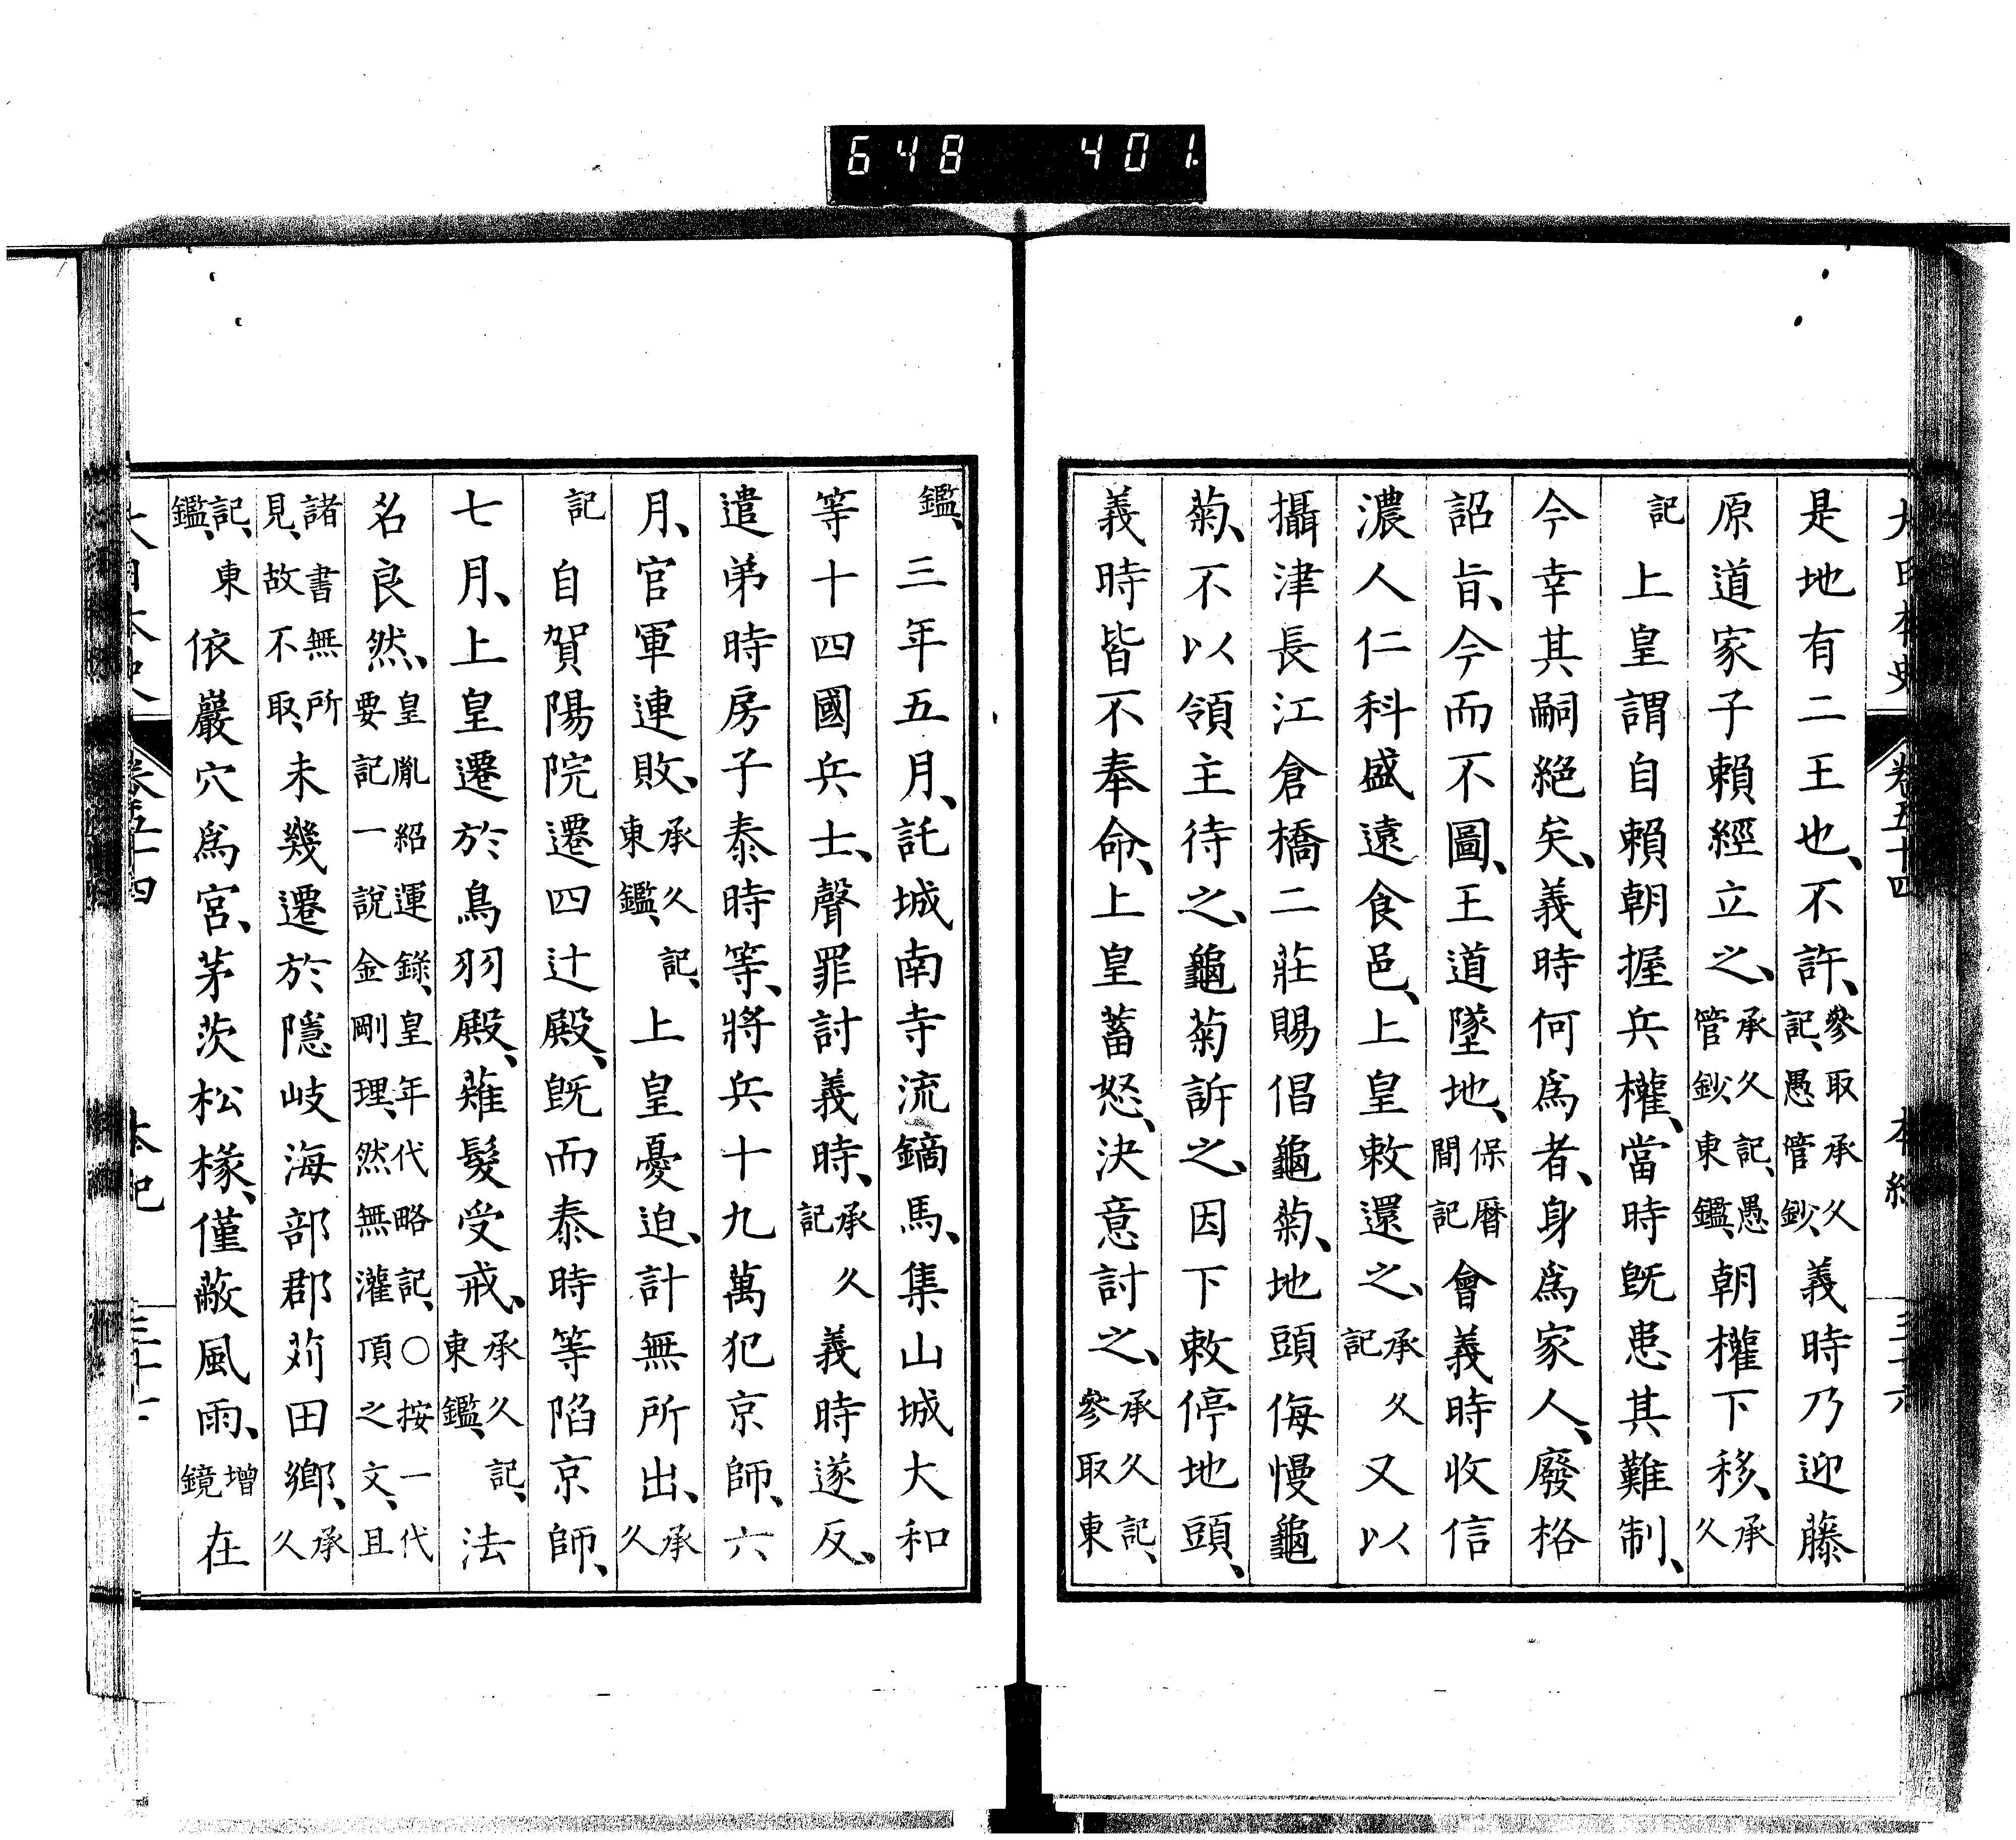 648 401
大日本史 卷五十四 本紀 三十六
是地有二王也、不許、參取承久記、愚管鈔、義時乃迎藤
原道家子賴經立之、承久記、愚管鈔、東鑑、朝權下移、承久
記上皇謂自賴朝握兵權、當時既患其難制、
今幸其嗣絕矣、義時何爲者、身爲家人、廢格
詔旨、今而不圖、王道墜地、保曆間記會義時收信
濃人仁科盛遠食邑、上皇敕還之、承久記又以
攝津長江倉橋二莊賜倡龜菊、地頭侮慢龜
菊、不以領主待之、龜菊訴之、因下敕停地頭、
義時皆不奉命、上皇蓄怒、決意討之、承久記、參取東
鑑、三年五月、託城南寺流鏑馬、集山城大和
等十四國兵士、聲罪討義時、承久記義時遂反、
遣弟時房子泰時等、將兵十九萬犯京師、六
月、官軍連敗、承久記、東鑑、上皇憂迫、計無所出、承久
記自賀陽院遷四辻殿、既而泰時等陷京師、
七月、上皇遷於鳥羽殿、薙髮受戒、承久記、東鑑、法
名良然、皇胤紹運錄、皇年代略記、○按一代要記一說金剛理、然無灌頂之文、且
諸書無所見、故不取、未幾遷於隱岐海部郡苅田鄉、承久
記、東鑑、依巖穴爲宮、茅茨松椽、僅蔽風雨、增鏡在
大日本史 卷五十四 本紀